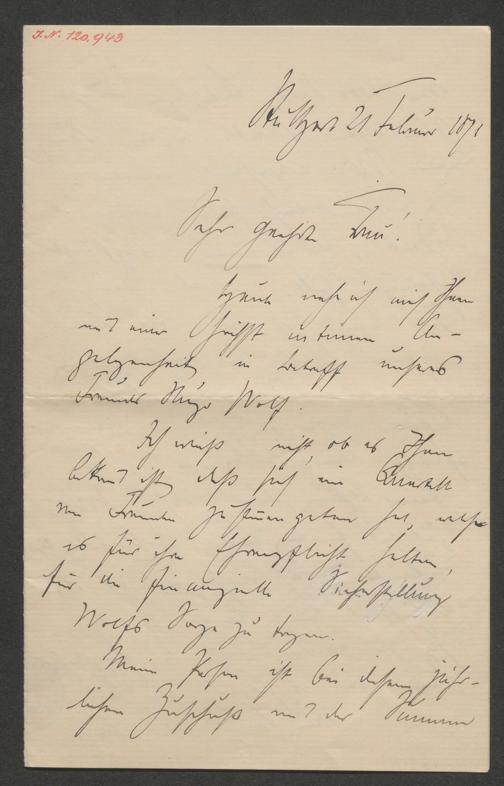 I.N. 120.943
Stuttgart 21 Februar 1891
Sehr geehrte Frau!
Heute nahe ich mich Ihnen
mit einer höchst intimen An-
gelegenheit in betreff unseres
Freundes Hugo Wolf.
Ich weiß nicht, ob es Ihnen
bekannt ist, daß sich ein Quartett
von Freunden zusammengethan hat, welche
es für ihre Ehrenpflicht halten,
für die finanzielle Sicherstellung
Wolfs Sorge zu tragen.
Mein Person ist bei diesem jähr-
lichen Zuschuß mit der Summe